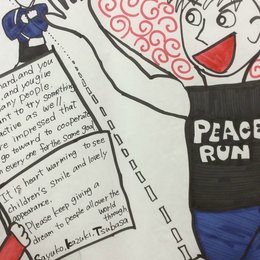 hard, and you
and you give
many people.
want to try something
active as well.
are impressed that
go toward to cooperate
in every one for the same goal
It is heart warming to see
children's smile and lovely
appearance.
Please keep giving a
dream to people all over the
world
through
Sayuko, Kazuki, Tsubasa
PEACE
RUN